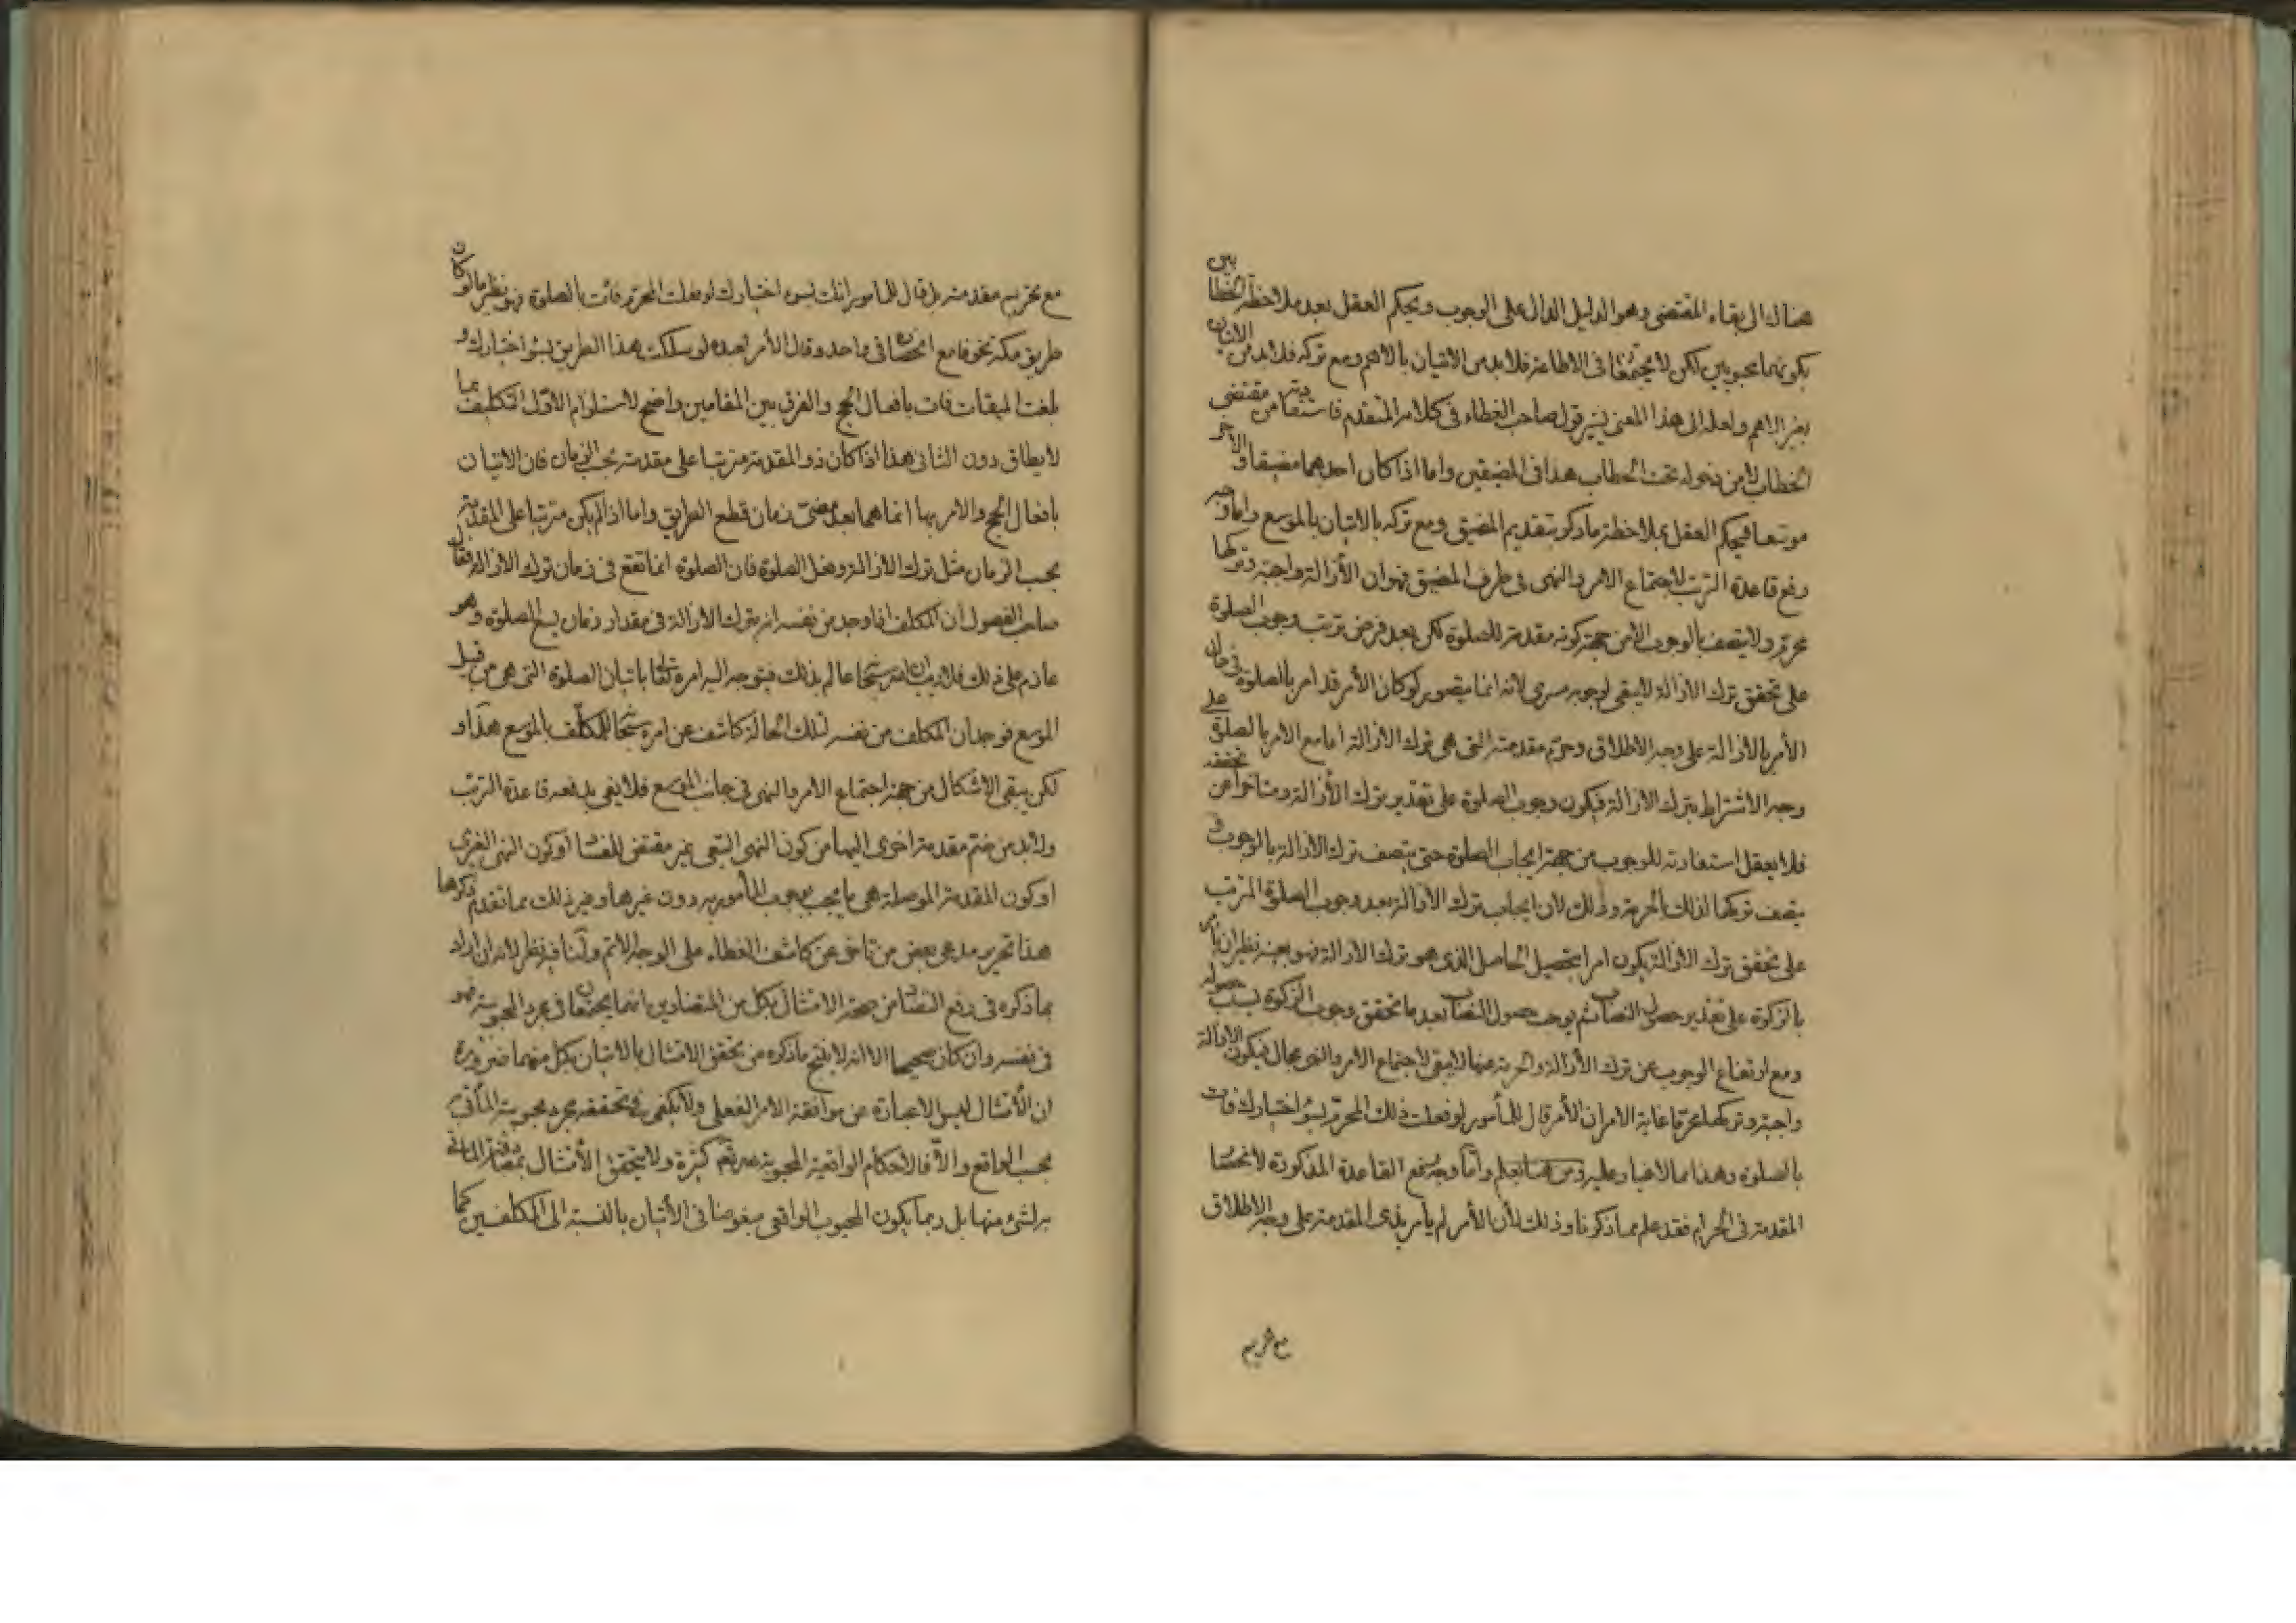 هناك الى بقاء المقتضى وهو الدليل الدال على الوجوب ويحكم العقل بعد ملاحظة الخطابين
بكونهما محبوبين لكن لا يجتمعان فى الاطاعة فلا بد من الاتيان بالاهم ومع تركه فلا بد من الاتيان
بغير الاهم ولعله الى هذا المعنى يشير قول صاحب الغطاء فى كلامه المتقدم فاستفادته من مقتضى
الخطاب لا من دخوله تحت الخطاب هذا فى المضيقين واما اذا كان احدهما مضيقا والاخر
موسعا فيحكم العقل بملاحظة ما ذكر بتقديم المضيق ومع تركه بالاتيان بالموسع واما وجه
رفع قاعدة الترتب لاجتماع الامر والنهى فى طرف المضيق فهو ان الأزالة واجبة وتركها
محرم ولا يتصف بالوجوب الا من جهة كونه مقدمة للصلوة لكن بعد فرض ترتب وجوب الصلوة
على تحقق ترك الازالة لا يبقى لوجوبه مسرى لانه انما يتصور لو كان الأمر قد امر بالصلوة فى حال
الأمر بالازالة على وجه الاطلاق وحرم مقدمته التى هى ترك الازالة اما مع الامر بالصلوة على
وجه الاشتراط بترك الازالة فيكون وجوب الصلوة على تقدير ترك الأزالة ومتاخرا عن تحققه
فلا يعقل استفادته للوجوب من جهة ايجاب الصلوة حتى يتصف ترك الازالة بالوجوب و
يتصف تركها لذلك بالحرمة وذلك لان ايجاب ترك الأزالة بعد وجوب الصلوة المترتب
على تحقق ترك الازالة يكون امرا بتحصيل الحاصل الذى هو ترك الازالة فهو بعينه نظير ان يأمر
بالزكوة على تقدير حصول النصاب ثم يوجب حصول النصاب بعد ما تحقق وجوب الزكوة بسبب حصوله
ومع ارتفاع الوجوب عن ترك الأزالة والحرمة عنها لا يبقى لاجتماع الامر والنهى مجال فيكون الازالة
واجبة وتركها محرما غاية الامر ان الأمر قال للمأمور لو فعلت ذلك المحرم بسوء اختيارك فات
بالصلوة وهذا مما لا غبار عليه وأما وجه رفع القاعدة المذكورة لانحصار
المقدمة فى الحرام فقد علم مما ذكرنا وذلك لأن الأمر لم يأمر بذى المقدمة على وجه الاطلاق
مع تحريم
مع تحريم مقدمته بل قال للمأمور انك بسوء اختيارك لو فعلت المحرم فأت بالصلوة فهو نظير ما لو كان
طريق مكة مخوفا مع انحصاره فى واحد وقال الأمر لعبده لو سلكت هذا الطريق بسوء اختيارك و
بلغت الميقات فات بافعال الحج والفرق بين المقامين واضح لاستلزام الاول التكليف بما
لا يطاق دون الثانى هذا اذا كان ذو المقدمة مترتبا على مقدمته بحسب الزمان فان الاتيان
بافعال الحج والامر بها انما هما بعد مضى زمان قطع الطريق واما اذا لم يكن مترتبا على المقدمة
بحسب الزمان مثل ترك الازالة وفعل الصلوة فان الصلوة انما تقع فى زمان ترك الازالة فقال
صاحب الفصول ان المكلف اذا وجد من نفسه انه يترك الازالة فى مقدار زمان يسع الصلوة وهو
عازم على ذلك فلا ريب ان الله سبحانه عالم بذلك فيتوجه اليه امره تعالى باتيان الصلوة التى هى من قبيل
الموسع فوجدان المكلف من نفسه لتلك الحالة كاشف عن امره سبحانه للمكلف بالموسع هذا و
لكن يبقى الاشكال من جهة اجتماع الامر والنهى فى جانب الموسع فلا يفى بدفعه قاعدة الترتب
ولا بد من ضم مقدمة اخرى اليها من كون النهى التبعى غير مقتض للفساد او كون النهى الغيرى
او كون المقدمة الموصلة هى ما يجب بوجوب المأمور به دون غيرها وغير ذلك مما تقدم ذكرها
هذا تحرير مدعى بعض من تاخر عن كاشف الغطاء على الوجه الاتم ولنا فيه نظر لانه ان اراد
بما ذكره فى رفع التضاد من صحة الامتثال بكل من المتضادين انهما يجتمعان فى مجرد المحبوبية فهو
فى نفسه وان كان صحيحا الا انه لا ينتج ما ذكره من تحقق الامتثال بالاتيان بكل منهما ضرورة
ان الأمتثال ليس الا عبارة عن موافقة الامر الفعلى ولا يكفى فى تحققه مجرد محبوبية المأتى به
بحسب الواقع والا فالاحكام الواقعية المحبوبة كثيرة ولا يتحقق الأمتثال بمصادفة المأتى
به لشئ منها بل ربما يكون المحبوب الواقعى مبغوضا فى الأتيان بالنسبة الى المكلفين كما